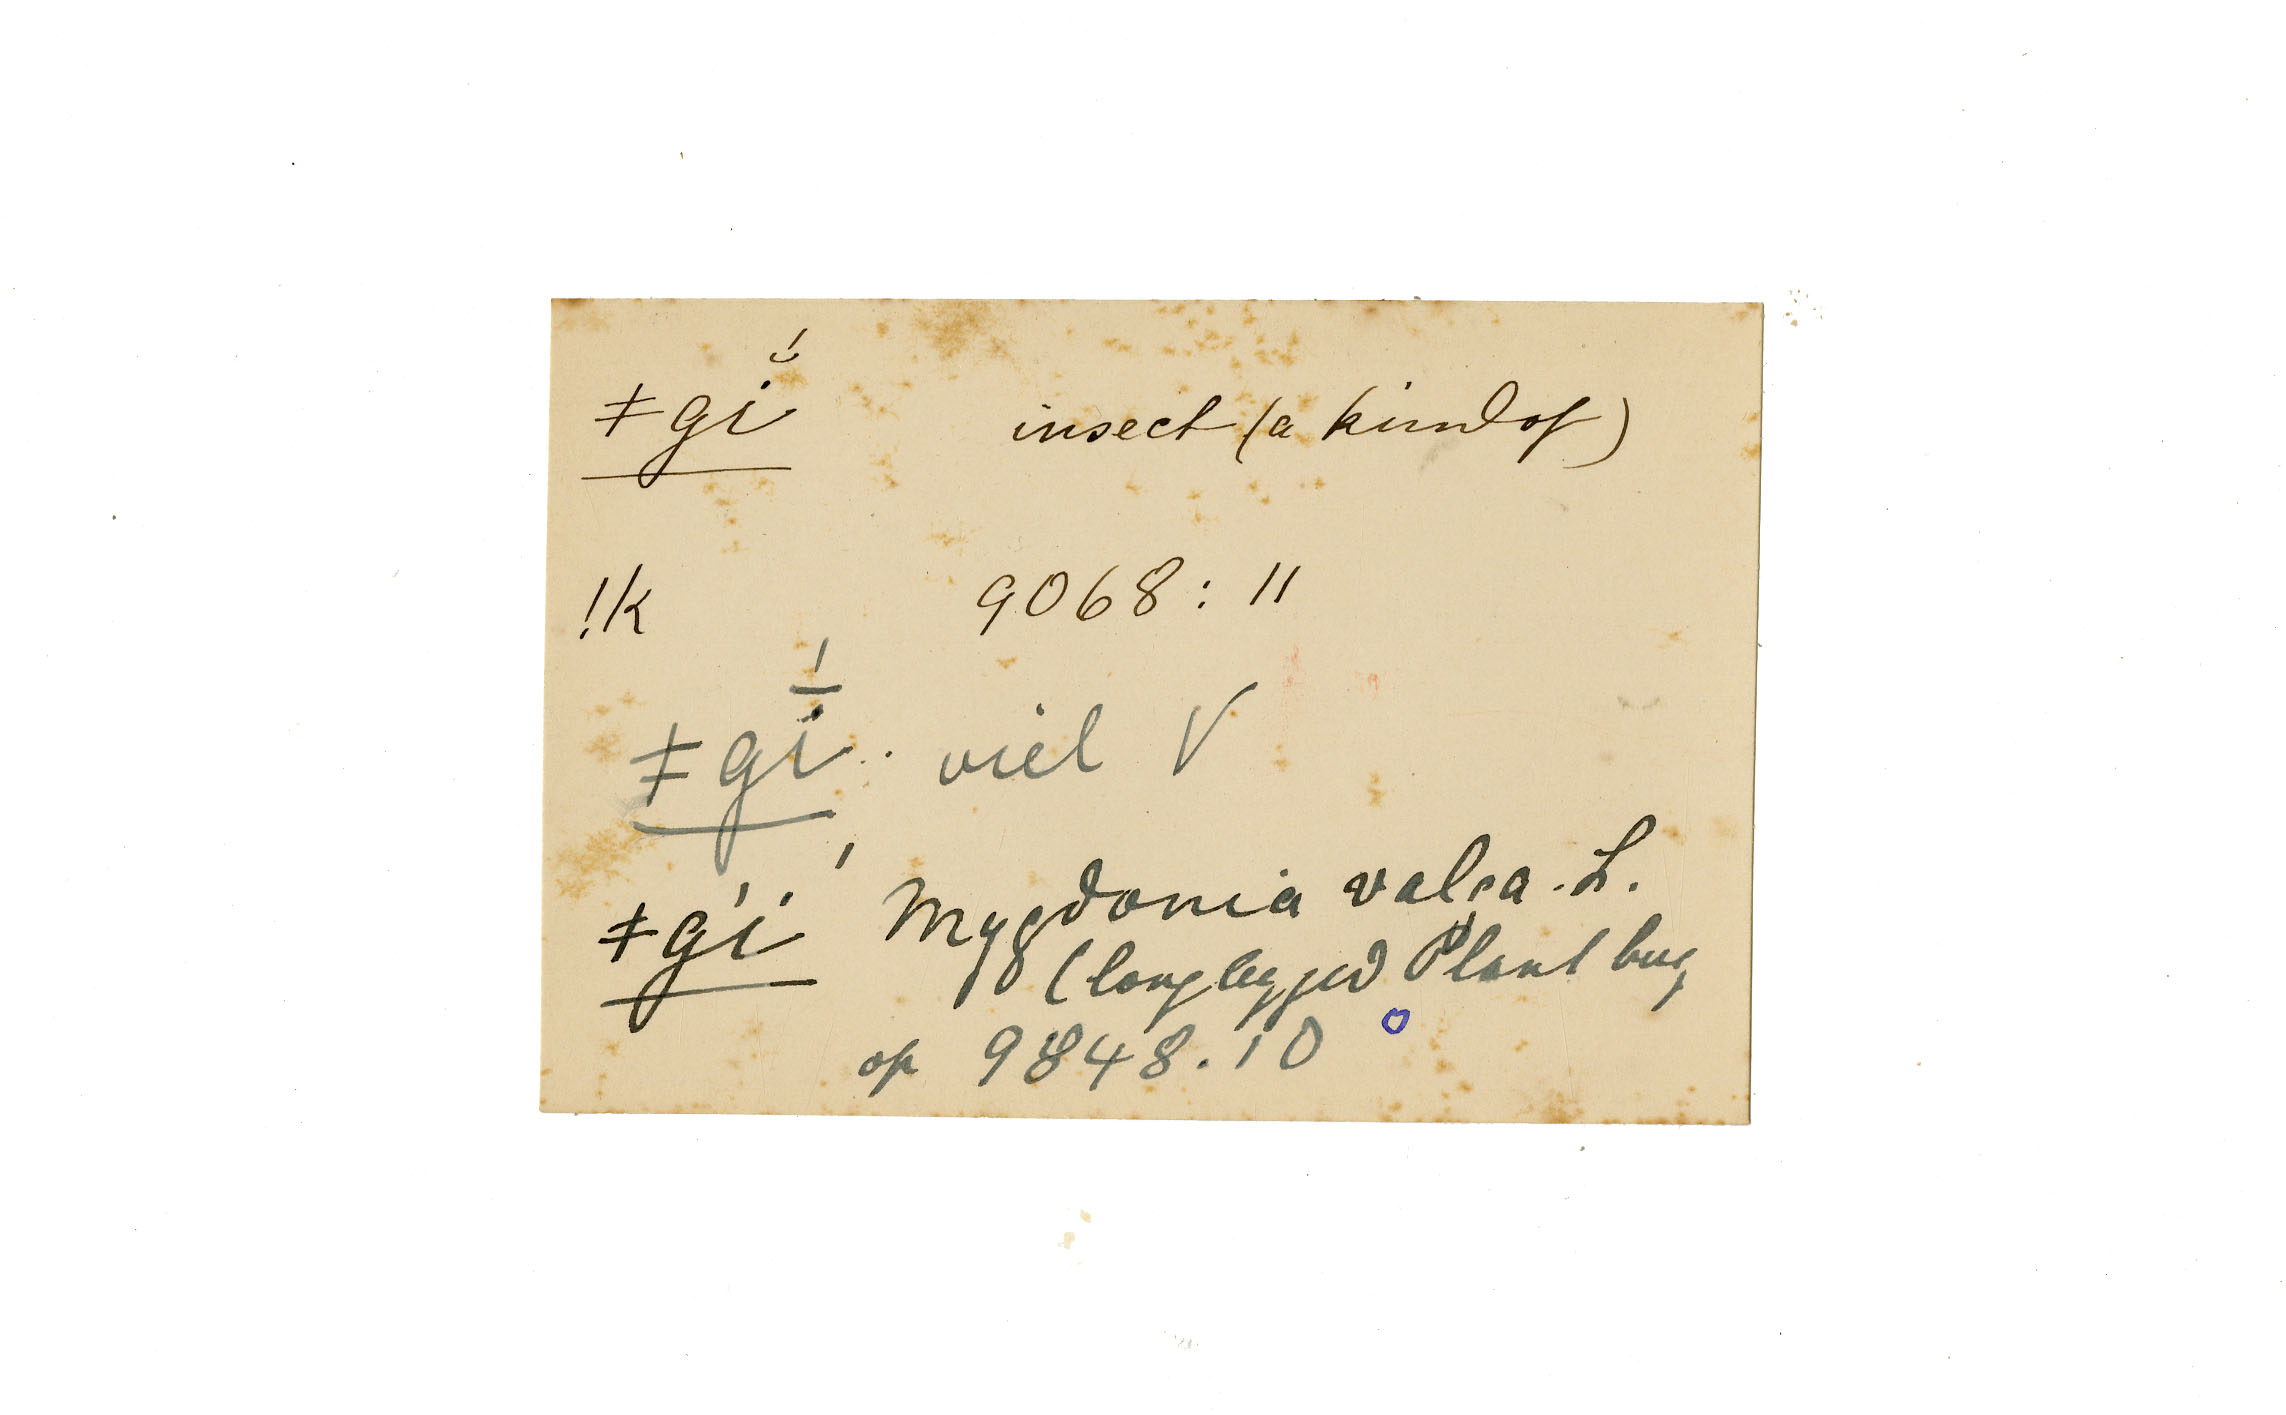 ǂgĭ́ insect (a kind of)
!k 9068: 11
ǂgī́. viel V
ǂg'i' Mygdonia valsa. L.
(long legged Plant bug
op 9848.10